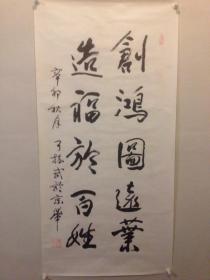 創鴻圖遠業
造福於百姓
辛卯秋月
於京華